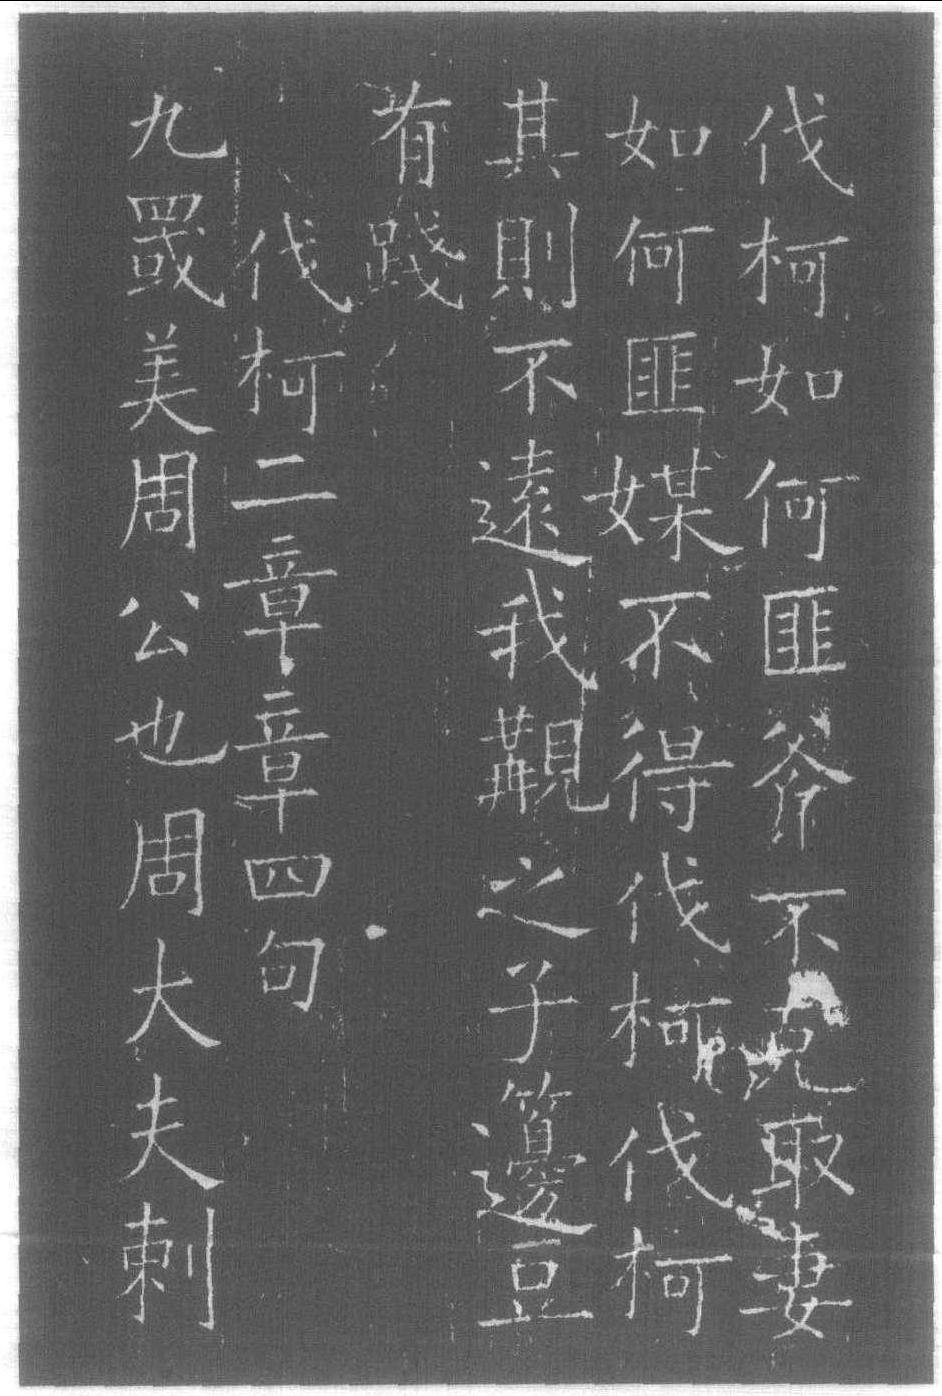 伐柯如何匪斧不克取妻
如何匪媒不得伐柯伐柯
其則不遠我覯之子籩豆
有踐
伐柯二章章四句
九罭美周公也周大夫刺